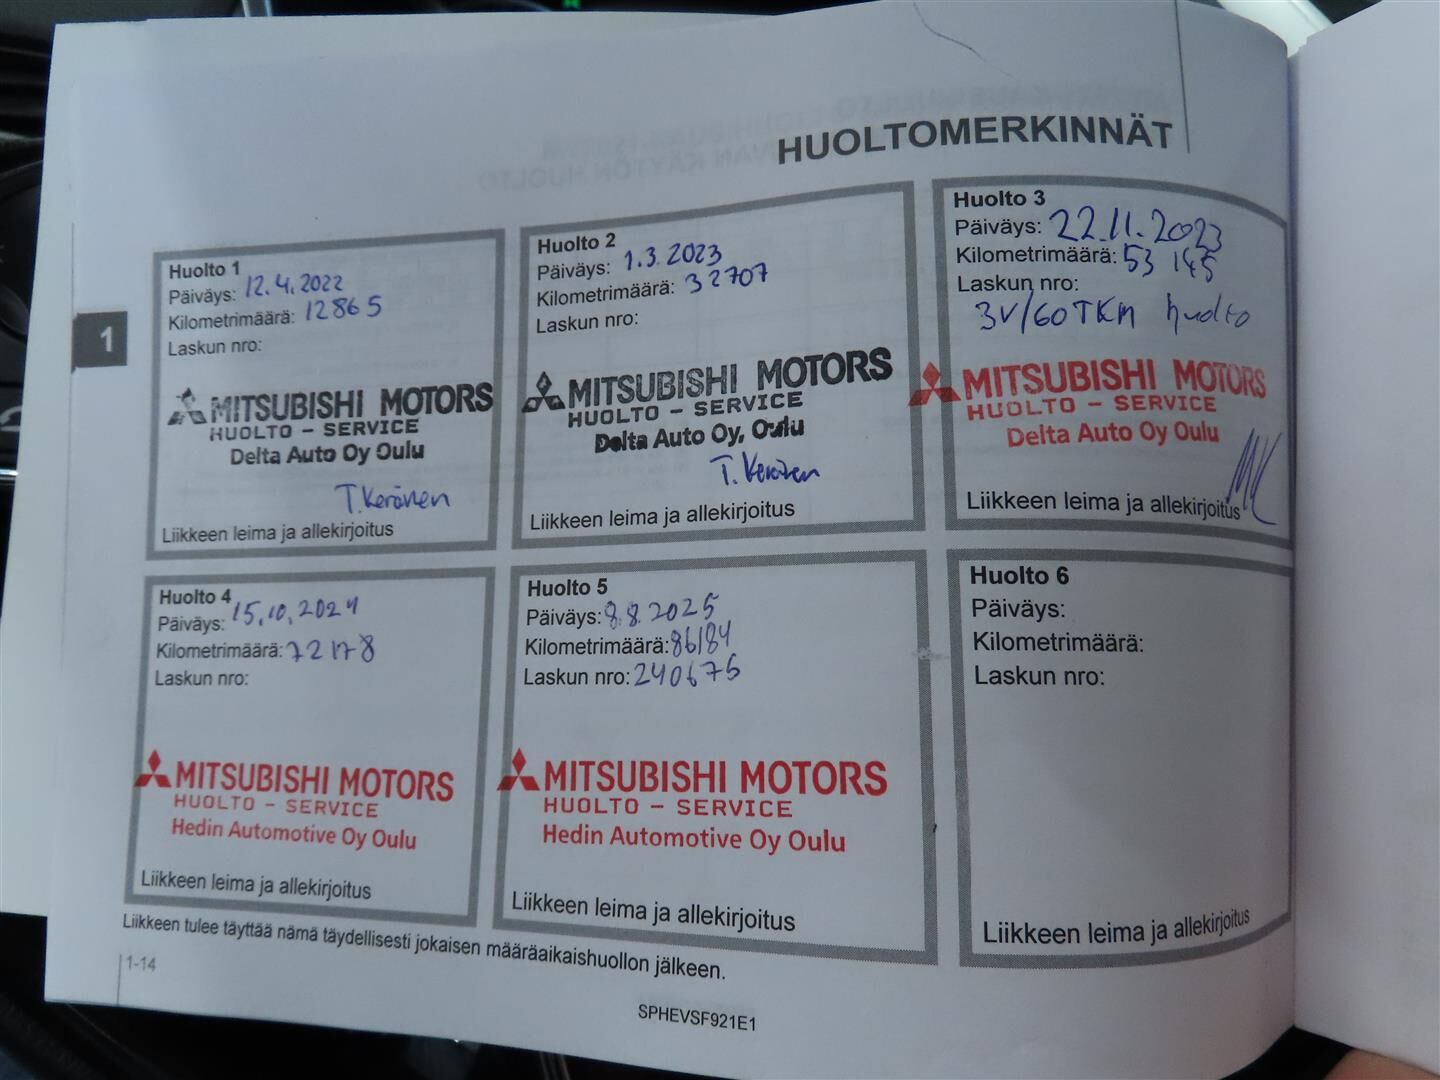 HUOLTOMERKINNÄT
1
Huolto 1
Päiväys: 12.4.2022
Kilometrimäärä: 12865
Laskun nro:
MITSUBISHI MOTORS
HUOLTO - SERVICE
Delta Auto Oy Oulu
T. Keränen
Liikkeen leima ja allekirjoitus
Huolto 2
Päiväys: 1.3.2023
Kilometrimäärä: 32707
Laskun nro:
MITSUBISHI MOTORS
HUOLTO - SERVICE
Delta Auto Oy, Oulu
T. Keränen
Liikkeen leima ja allekirjoitus
Huolto 3
Päiväys: 22.11.2023
Kilometrimäärä: 53 145
Laskun nro:
3V/60TKM huolto
MITSUBISHI MOTORS
HUOLTO - SERVICE
Delta Auto Oy Oulu
Liikkeen leima ja allekirjoitus
Huolto 4
Päiväys: 15.10.2024
Kilometrimäärä: 72178
Laskun nro:
MITSUBISHI MOTORS
HUOLTO - SERVICE
Hedin Automotive Oy Oulu
Liikkeen leima ja allekirjoitus
Huolto 5
Päiväys: 8.8.2025
Kilometrimäärä: 86184
Laskun nro: 240675
MITSUBISHI MOTORS
HUOLTO - SERVICE
Hedin Automotive Oy Oulu
Liikkeen leima ja allekirjoitus
Huolto 6
Päiväys:
Kilometrimäärä:
Laskun nro:
Liikkeen leima ja allekirjoitus
Liikkeen tulee täyttää nämä täydellisesti jokaisen määräaikaishuollon jälkeen.
1-14
SPHEVSF921E1